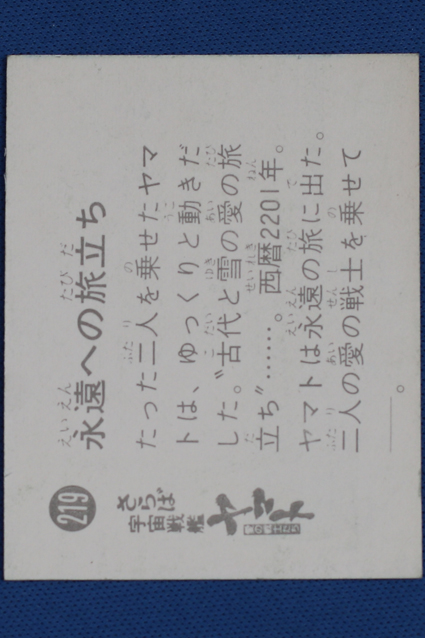 219
さらば
宇宙戦艦
ヤマト
永遠への旅立ち
たった二人を乗せたヤマ
トは、ゆっくりと動きだ
した。“古代と雪の愛の旅
立ち”……。西暦2201年。
ヤマトは永遠の旅に出た。
二人の愛の戦士を乗せて
――。